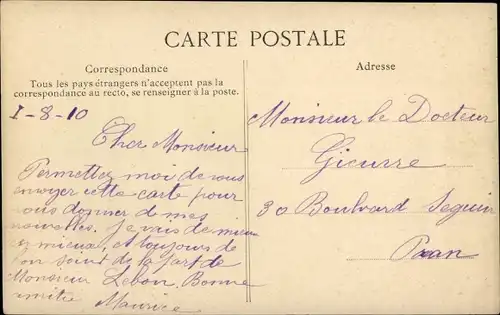 CARTE POSTALE
Correspondance
Tous les pays étrangers n'acceptent pas la
correspondance au recto, se renseigner à la poste.
1-8-10
Cher Monsieur
Permettez moi de vous
envoyer cette carte pour
vous donner de mes
nouvelles. Je vais de mieux
en mieux, et toujours de
bon soint de la part de
Monsieur Lebon. Bonne
amitié Maurice
Adresse
Monsieur le Docteur
Gieurre
30 Boulvard Seguin